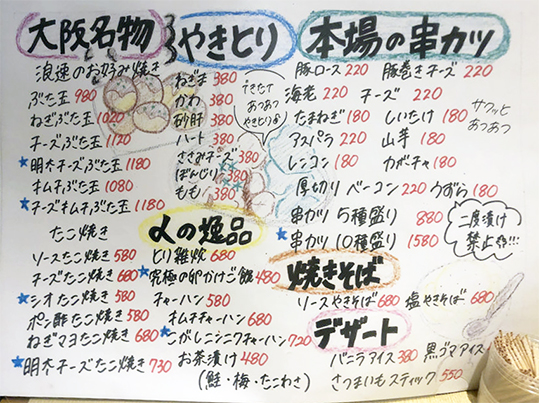 大阪名物
浪速のお好み焼き
ぶた玉 980
ねぎぶた玉 1020
チーズぶた玉 1120
★明太チーズぶた玉 1180
オムチぶた玉 1080
★チーズオムチぶた玉 1180
たこ焼き
ソースたこ焼き 580
チーズたこ焼き 680
★シオたこ焼き 580
ポン酢たこ焼き 580
ねぎマヨたこ焼き 680
★明太チーズたこ焼き 730
やきとり
ねぎま 380
かわ 380
砂肝 380
ハート 380
ささみチーズ 380
ぼんじり 380
もも 380
できたて
あつあつ
やきとり
〆の逸品
とり雑炊 680
★究極の卵かけご飯 480
チャーハン 580
オムチチャーハン 680
★こがしニンニクチャーハン 720
お茶漬け 480
(鮭・梅・たこわさ)
本場の串カツ
豚ロース 220 豚巻きチーズ 220
海老 220 チーズ 220
たまねぎ 180 しいたけ 180
アスパラ 220 山芋 180
レンコン 180 カボチャ 180
厚切りベーコン 220 うずら 180
串カツ 5種盛り 880
★串カツ 10種盛り 1580
サクッと
あつあつ
二度漬け
禁止!!!
焼きそば
ソースやきそば 680 塩やきそば 680
デザート
バニラアイス 380 黒ゴマアイス
さつまいもスティック 550